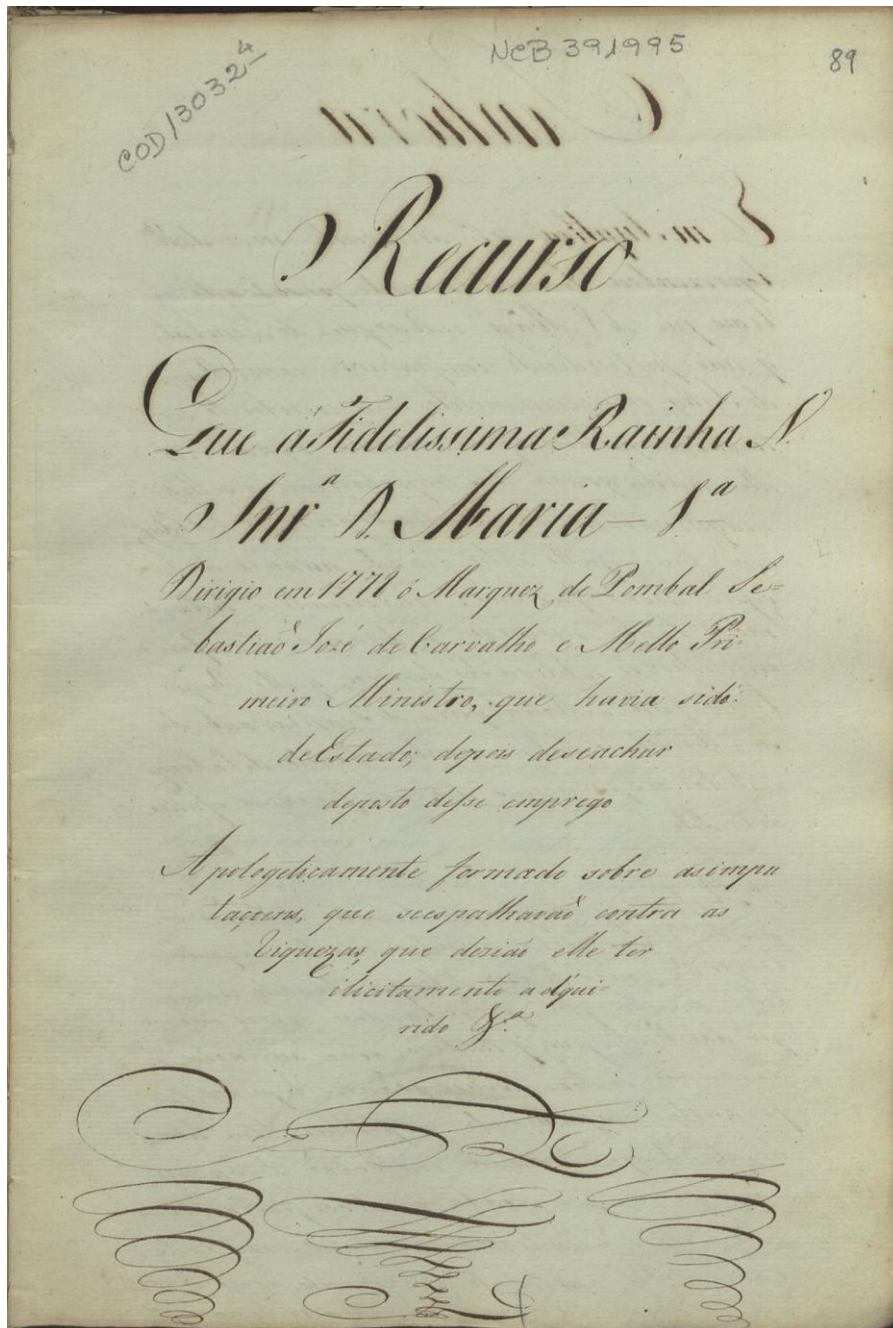 COD/13032//4
NCB 391995
89
Recurso
Que á Fidelissima Rainha N.
Snrª D. Maria 1ª
Dirigio em 1777 ó Marquez de Pombal Se=
bastiaõ Jozé de Carvalho e Mello Pri-
meiro Ministro, que havia sido
de Estado; depois deseachar
deposto desse emprego
Apologeticamente formado sobre asimpu
taçoens, que seespalhavaõ contra as
riquezas, que deziaõ elle ter
ilicitamente adqui-
rido &ª